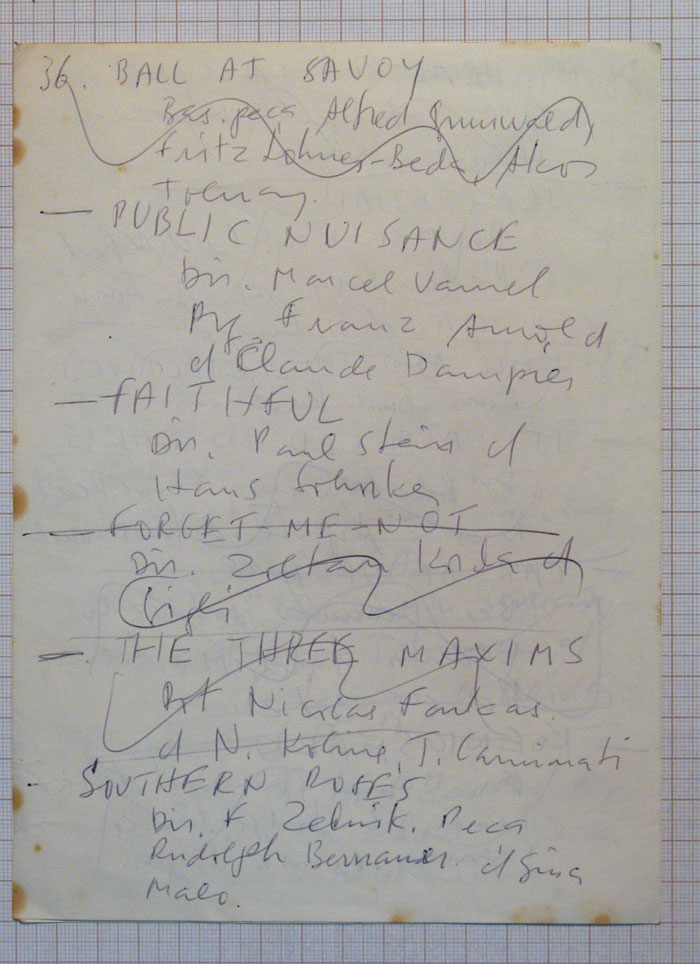 36. BALL AT SAVOY
Bas. peça Alfred Grunwald,
Fritz Löhner-Beda, Akos
Tolnay.
— PUBLIC NUISANCE
Dir. Marcel Varnel
Pf. Franz Arnold
d Claude Dampier
— FAITHFUL
Dir. Paul Stein d
Hans Söhnker
— FORGET-ME-NOT
Dir. Zoltan Korda d
Gigli
— THE THREE MAXIMS
Nicolas Farkas.
d N. Koline, T. Carminati
- SOUTHERN ROSES
Dir. F. Zelnik. Peca
Rudolph Bernauer. d Gina
Malo.